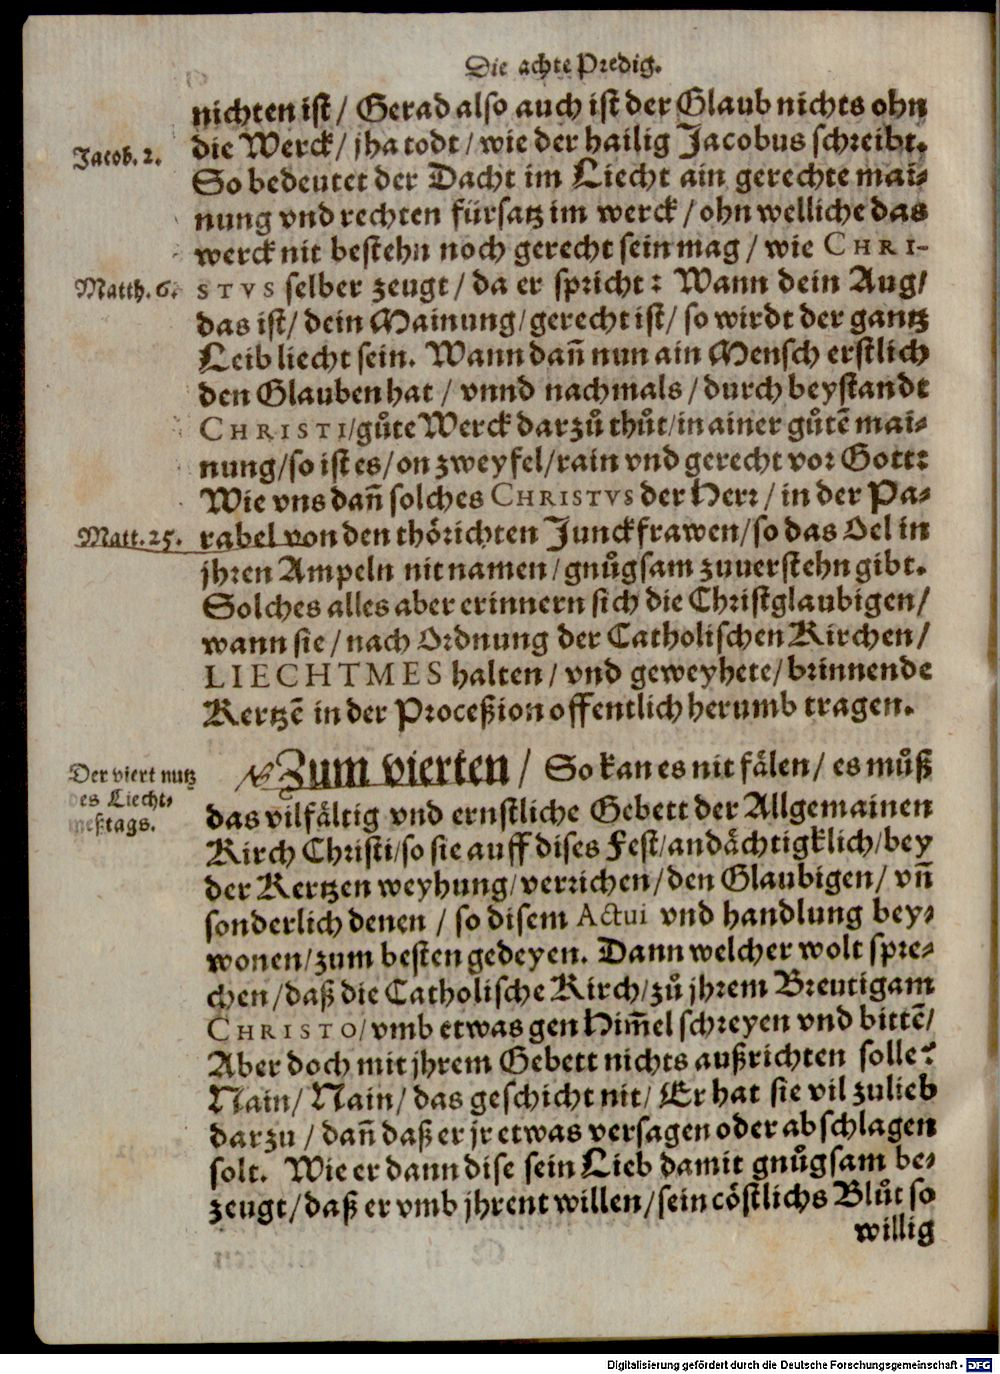 Die achte Predig.
nichten ist / Gerad also auch ist der Glaub nichts ohn
Jacob. 2.
die Werck / jha todt / wie der hailig Jacobus schreibt.
So bedeutet der Dacht im Liecht ain gerechte mai-
nung vnd rechten fürsatz im werck / ohn welliche das
werck nit bestehn noch gerecht sein mag / wie CHRI-
Matth. 6.
STVS selber zeugt / da er spricht: Wann dein Aug /
das ist / dein Mainung / gerecht ist / so wirdt der gantz
Leib liecht sein. Wann dañ nun ain Mensch erstlich
den Glauben hat / vnnd nachmals / durch beystandt
CHRISTI / gůte Werck darzů thůt / in ainer gůtẽ mai-
nung / so ist es / on zweyfel / rain vnd gerecht vor Gott:
Wie vns dañ solches CHRISTVS der Herr / in der Pa-
Matt. 25.
rabel von den thörichten Junckfrawen / so das Oel in
jhren Ampeln nit namen / gnůgsam zuuerstehn gibt.
Solches alles aber erinnern sich die Christglaubigen /
wann sie / nach Ordnung der Catholischen Kirchen /
LIECHTMES halten / vnd geweyhete / brinnende
Kertzẽ in der Proceßion offentlich herumb tragen.
Der viert nutz
des Liecht-
meßtags.
Zum vierten / So kan es nit fälen / es můß
das vilfältig vnd ernstliche Gebett der Allgemainen
Kirch Christi / so sie auff dises Fest / andächtigklich / bey
der Kertzen weyhung / verrichen / den Glaubigen / vñ
sonderlich denen / so disem Actui vnd handlung bey-
wonen / zum besten gedeyen. Dann welcher wolt spre-
chen / daß die Catholische Kirch / zů jhrem Breutigam
CHRISTO / vmb etwas gen Him̃el schreyen vnd bittẽ /
Aber doch mit jhrem Gebett nichts außrichten solle?
Nain / Nain / das geschicht nit / Er hat sie vil zulieb
darzu / dañ daß er jr etwas versagen oder abschlagen
solt. Wie er dann dise sein Lieb damit gnůgsam be-
zeugt / daß er vmb jhrent willen / sein cöstlichs Blůt so
willig
Digitalisierung gefördert durch die Deutsche Forschungsgemeinschaft - DFG